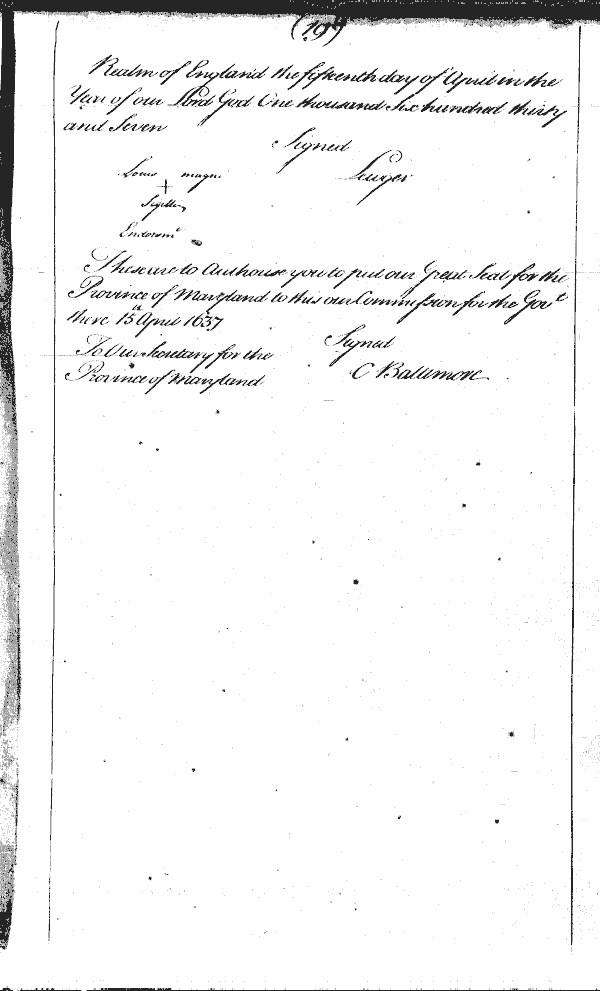 Realm of England the fifteenth day of April in the
Year of our Lord God One thousand Six hundred thirty
and Seven
Signed
Locus magni Lewger
+
Sigilli
Endorsmt
These are to Authouse you to put our Great Seal for the
Province of Maryland to this our Commission for the Govt
there 15th April 1637
To Our Secretary for the Signed
Province of Maryland C Baltimore